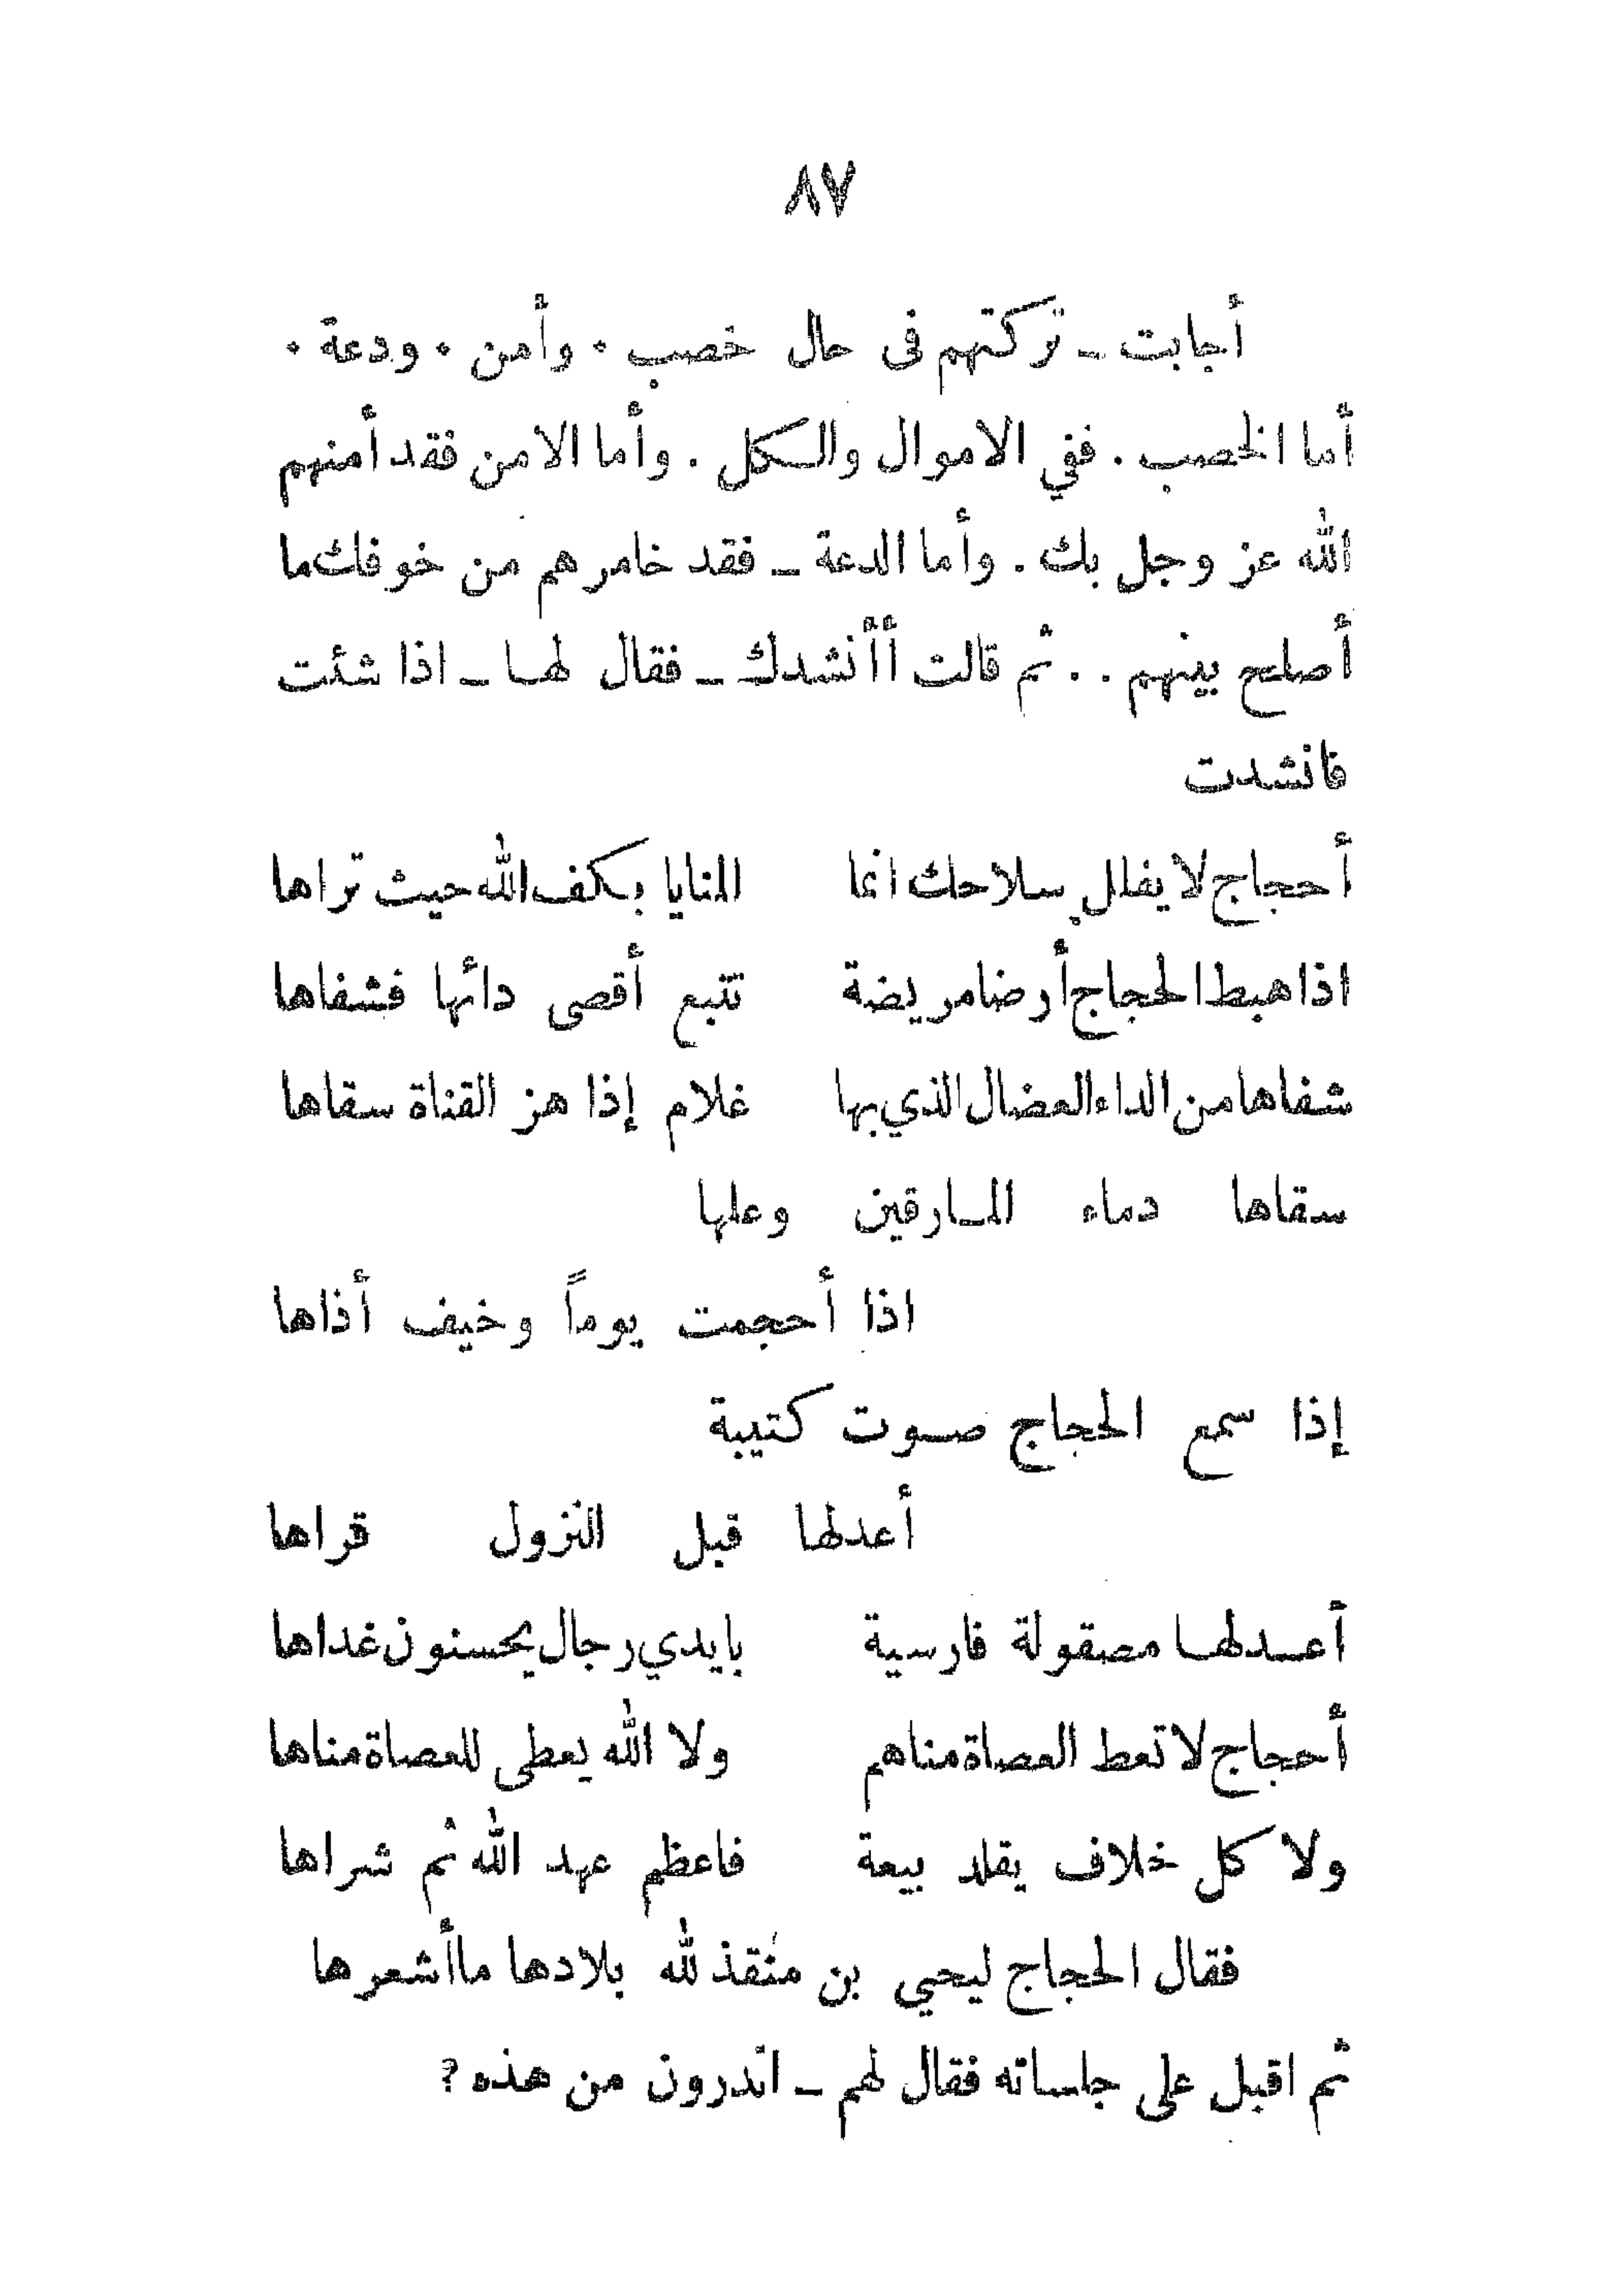 ٨٧
أجابت ـ تركتهم فى حال خصب . وأمن . ودعة .
أما الخصب . ففي الاموال والكل . وأما الامن فقد أمنهم
الله عز وجل بك . وأما الدعة ـ فقد خامرهم من خوفك ما
أصلح بينهم . . ثم قالت أأنشدك ـ فقال لها ـ اذا شئت
فانشدت
أحجاج لا يفلل سلاحك انما المنايا بكف الله حيث تراها
اذا هبط الحجاج أرضا مريضة تتبع أقصى دائها فشفاها
شفاها من الداء العضال الذي بها غلام إذا هز القناة سقاها
سقاها دماء المارقين وعلها
اذا أحجمت يوماً وخيف أذاها
إذا سمع الحجاج صوت كتيبة
أعد لها قبل النزول قراها
أعد لها مصقولة فارسية بايدي رجال يحسنون غداها
أحجاج لا تعط العصاة مناهم ولا الله يعطى للعصاة مناها
ولا كل خلاف يقلد بيعة فاعظم عهد الله ثم شراها
فقال الحجاج ليحيي بن منقذ لله بلادها ما أشعرها
ثم اقبل على جلسائه فقال لهم ـ اتدرون من هذه ؟